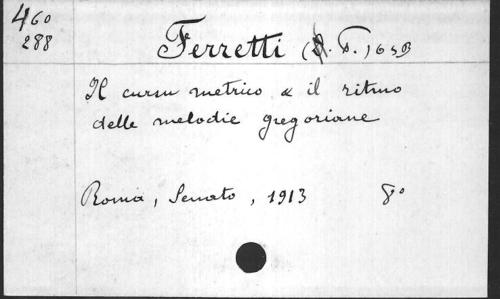 460
288
Ferretti (D. P.) OSB
Il cursu metrico e il ritmo
delle melodie gregoriane
Roma, Senato, 1913 8°